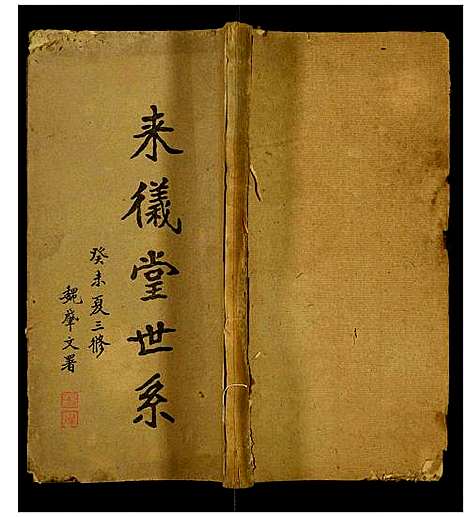 来儀堂世系
癸未夏三修
魏肇文署